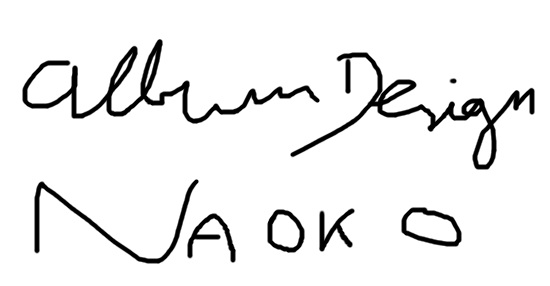 Album Design
NAOKO